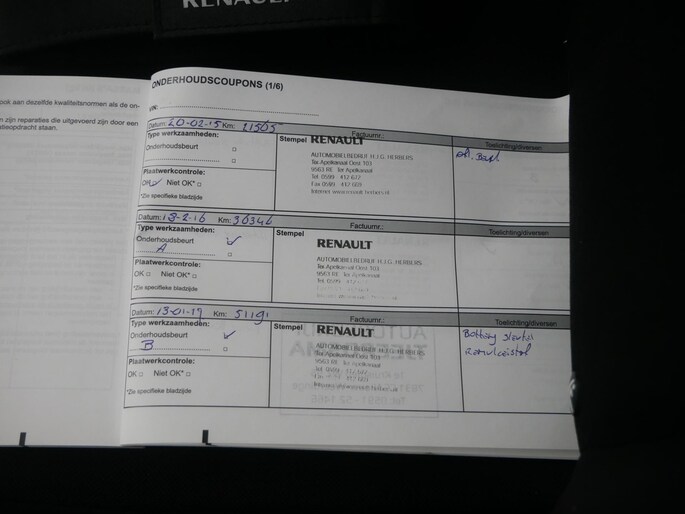 RENAULT
ook aan dezelfde kwaliteitsnormen als de on-
n zijn reparaties die uitgevoerd zijn door een
dieopdracht staan.
ONDERHOUDSCOUPONS (1/6)
VIN:
Datum: 20-02-15 Km: 21505 Factuurnr.:
Type werkzaamheden: Stempel RENAULT Toelichting/diversen
Onderhoudsbeurt
AUTOMOBIELBEDRIJF H.J.G. HERBERS
Ter Apelkanaal Oost 101
9563 RE Ter Apelkanaal
Tel. 0599 - 412 677
Fax 0599 - 412 669
Internet www.renault-herbers.nl
Plaatwerkcontrole:
OK Niet OK*
*Zie specifieke bladzijde
Datum: 13-2-16 Km: 36346 Factuurnr.:
Type werkzaamheden: Stempel RENAULT Toelichting/diversen
Onderhoudsbeurt
A
AUTOMOBIELBEDRIJF H.J.G. HERBERS
Ter Apelkanaal Oost 101
9563 RE Ter Apelkanaal
Tel. 0599 - 412
Plaatwerkcontrole:
OK Niet OK*
*Zie specifieke bladzijde
Datum: 13-01-17 Km: 51191 Factuurnr.:
Type werkzaamheden: Stempel RENAULT Toelichting/diversen
Onderhoudsbeurt
B
AUTOMOBIELBEDRIJF H.J.G. HERBERS
Ter Apelkanaal Oost 101
9563 RE Ter Apelkanaal
Fax 0599 - 412 669
Plaatwerkcontrole:
OK Niet OK*
*Zie specifieke bladzijde